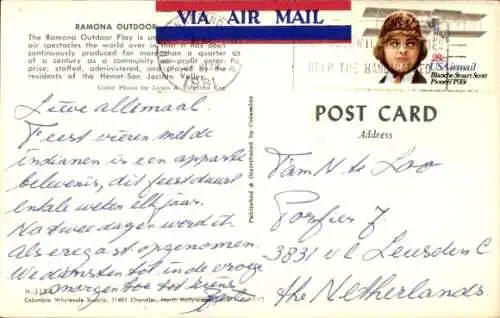 RAMONA OUTDOOR
The Ramona Outdoor Play is un
air spectacles the world over in that it has
continuously produced for more than a quarter
of a century as a community non-profit enter-
prise; staffed, administered, and played by the
residents of the Hemet-San Jacinto Valley.
Color Photo by
VIA AIR MAIL
HELP THE
28c
USAirmail
Blanche Stuart Scott
Pioneer Pilot
Lieve allemaal.
Feest vieren met de
indianen is een aparte
belevenis, dit feest duurt
enkele weken elk jaar.
Na twee dagen werd ik
als eregast opgenomen.
We dansten tot in de vroege
morgen toe tot ziens
Published & Distributed by Columbia
POST CARD
Address
Fam N te Loo
Porfier 7
3831 v l Leusden C
the Netherlands
Columbia Wholesale Supply, 11401 Chandler, North Hollywood